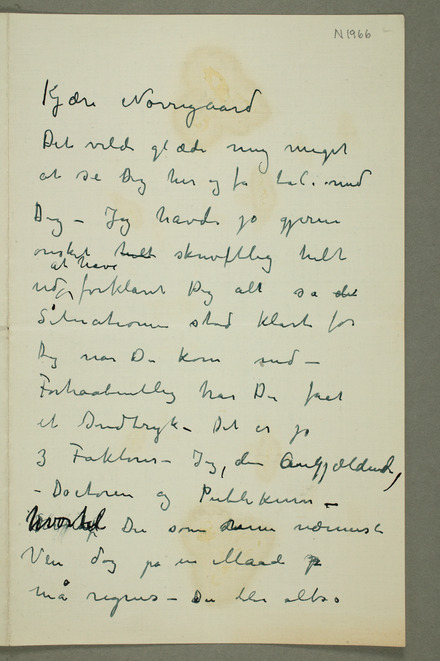 N1966
Kjære Norregaard
Det vilde glæde mig meget
at se Dig her og fa tale med
Dig – Jeg havde jo gjerne
onsket helt skriftlig helt
at have
ud forklaret Dig alt sa de
Situationen stod klart for
Dig nar Du kom ned –
Forhaabentlig har Du faaet
et Indtryk – Det er jo
3 Faktorer – Jeg, den Angjældende,
– Doctoren og Publikum –
hvortil Du som nærmest
Ven dog pa en Maade
må regnes – Du blir altsa